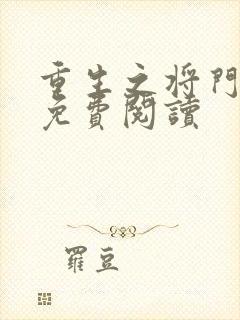 重生之将門
免費閱讀
羅豆